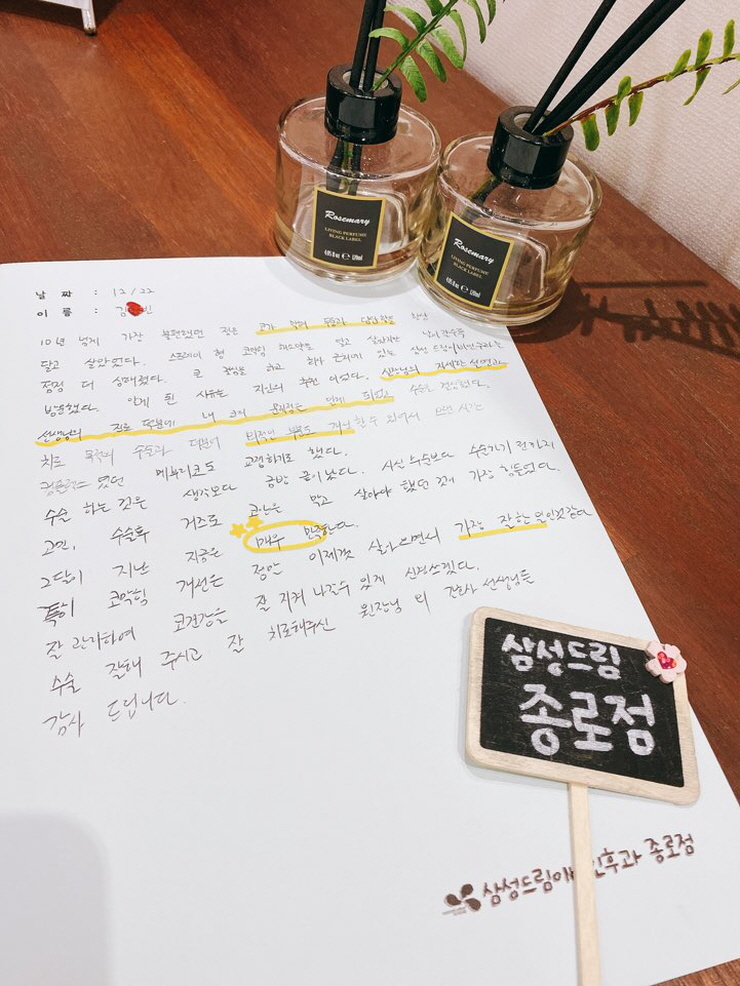 Rosemary
LIVING PERFUME
BLACK LABEL
Rosemary
LIVING PERFUME
BLACK LABEL
날 짜 : 12/22
이 름 : 김 빈
10년 넘게 가장 불편했던 점은 코가 항상
달고 살았었다. 스프레이 형 코막힘 해소약도
점점 더 심해졌다. 큰 결심을 하고 회사 근처에 있는 삼성드림이비인후과를
방문했다. 알게 된 사유는 지인의 추천 이었다. 선생님의 자세한 설명과
선생님의 진료 덕분에 내 코의 문제점을 알게 되었고 수술을 결심했다.
치료 목적의 수술과 더불어 외적인 부분도 개선할수 있어서 오랜 시간
컴플렉스 였던 매부리코도 교정하기로 했다.
수술 하는 것은 생각보다 금방 끝이났다. 사실 수술보다 수술하기 전까지
고민, 수술후 거즈로 코안을 막고 살아야 했던 것이 가장 힘들었다.
그달이 지난 지금은 매우 만족한다.
특히 코막힘 개선은 정말 이제껏 살아오면서 가장 잘한 일인것같다
잘 관리하여 코건강을 잘 지켜 나갈수 있게 신경쓰겠다.
수술 잘해 주시고 잘 치료해주신 원장님 외 간호사 선생님들
감사 드립니다.
삼성드림
종로점
삼성드림이비인후과 종로점